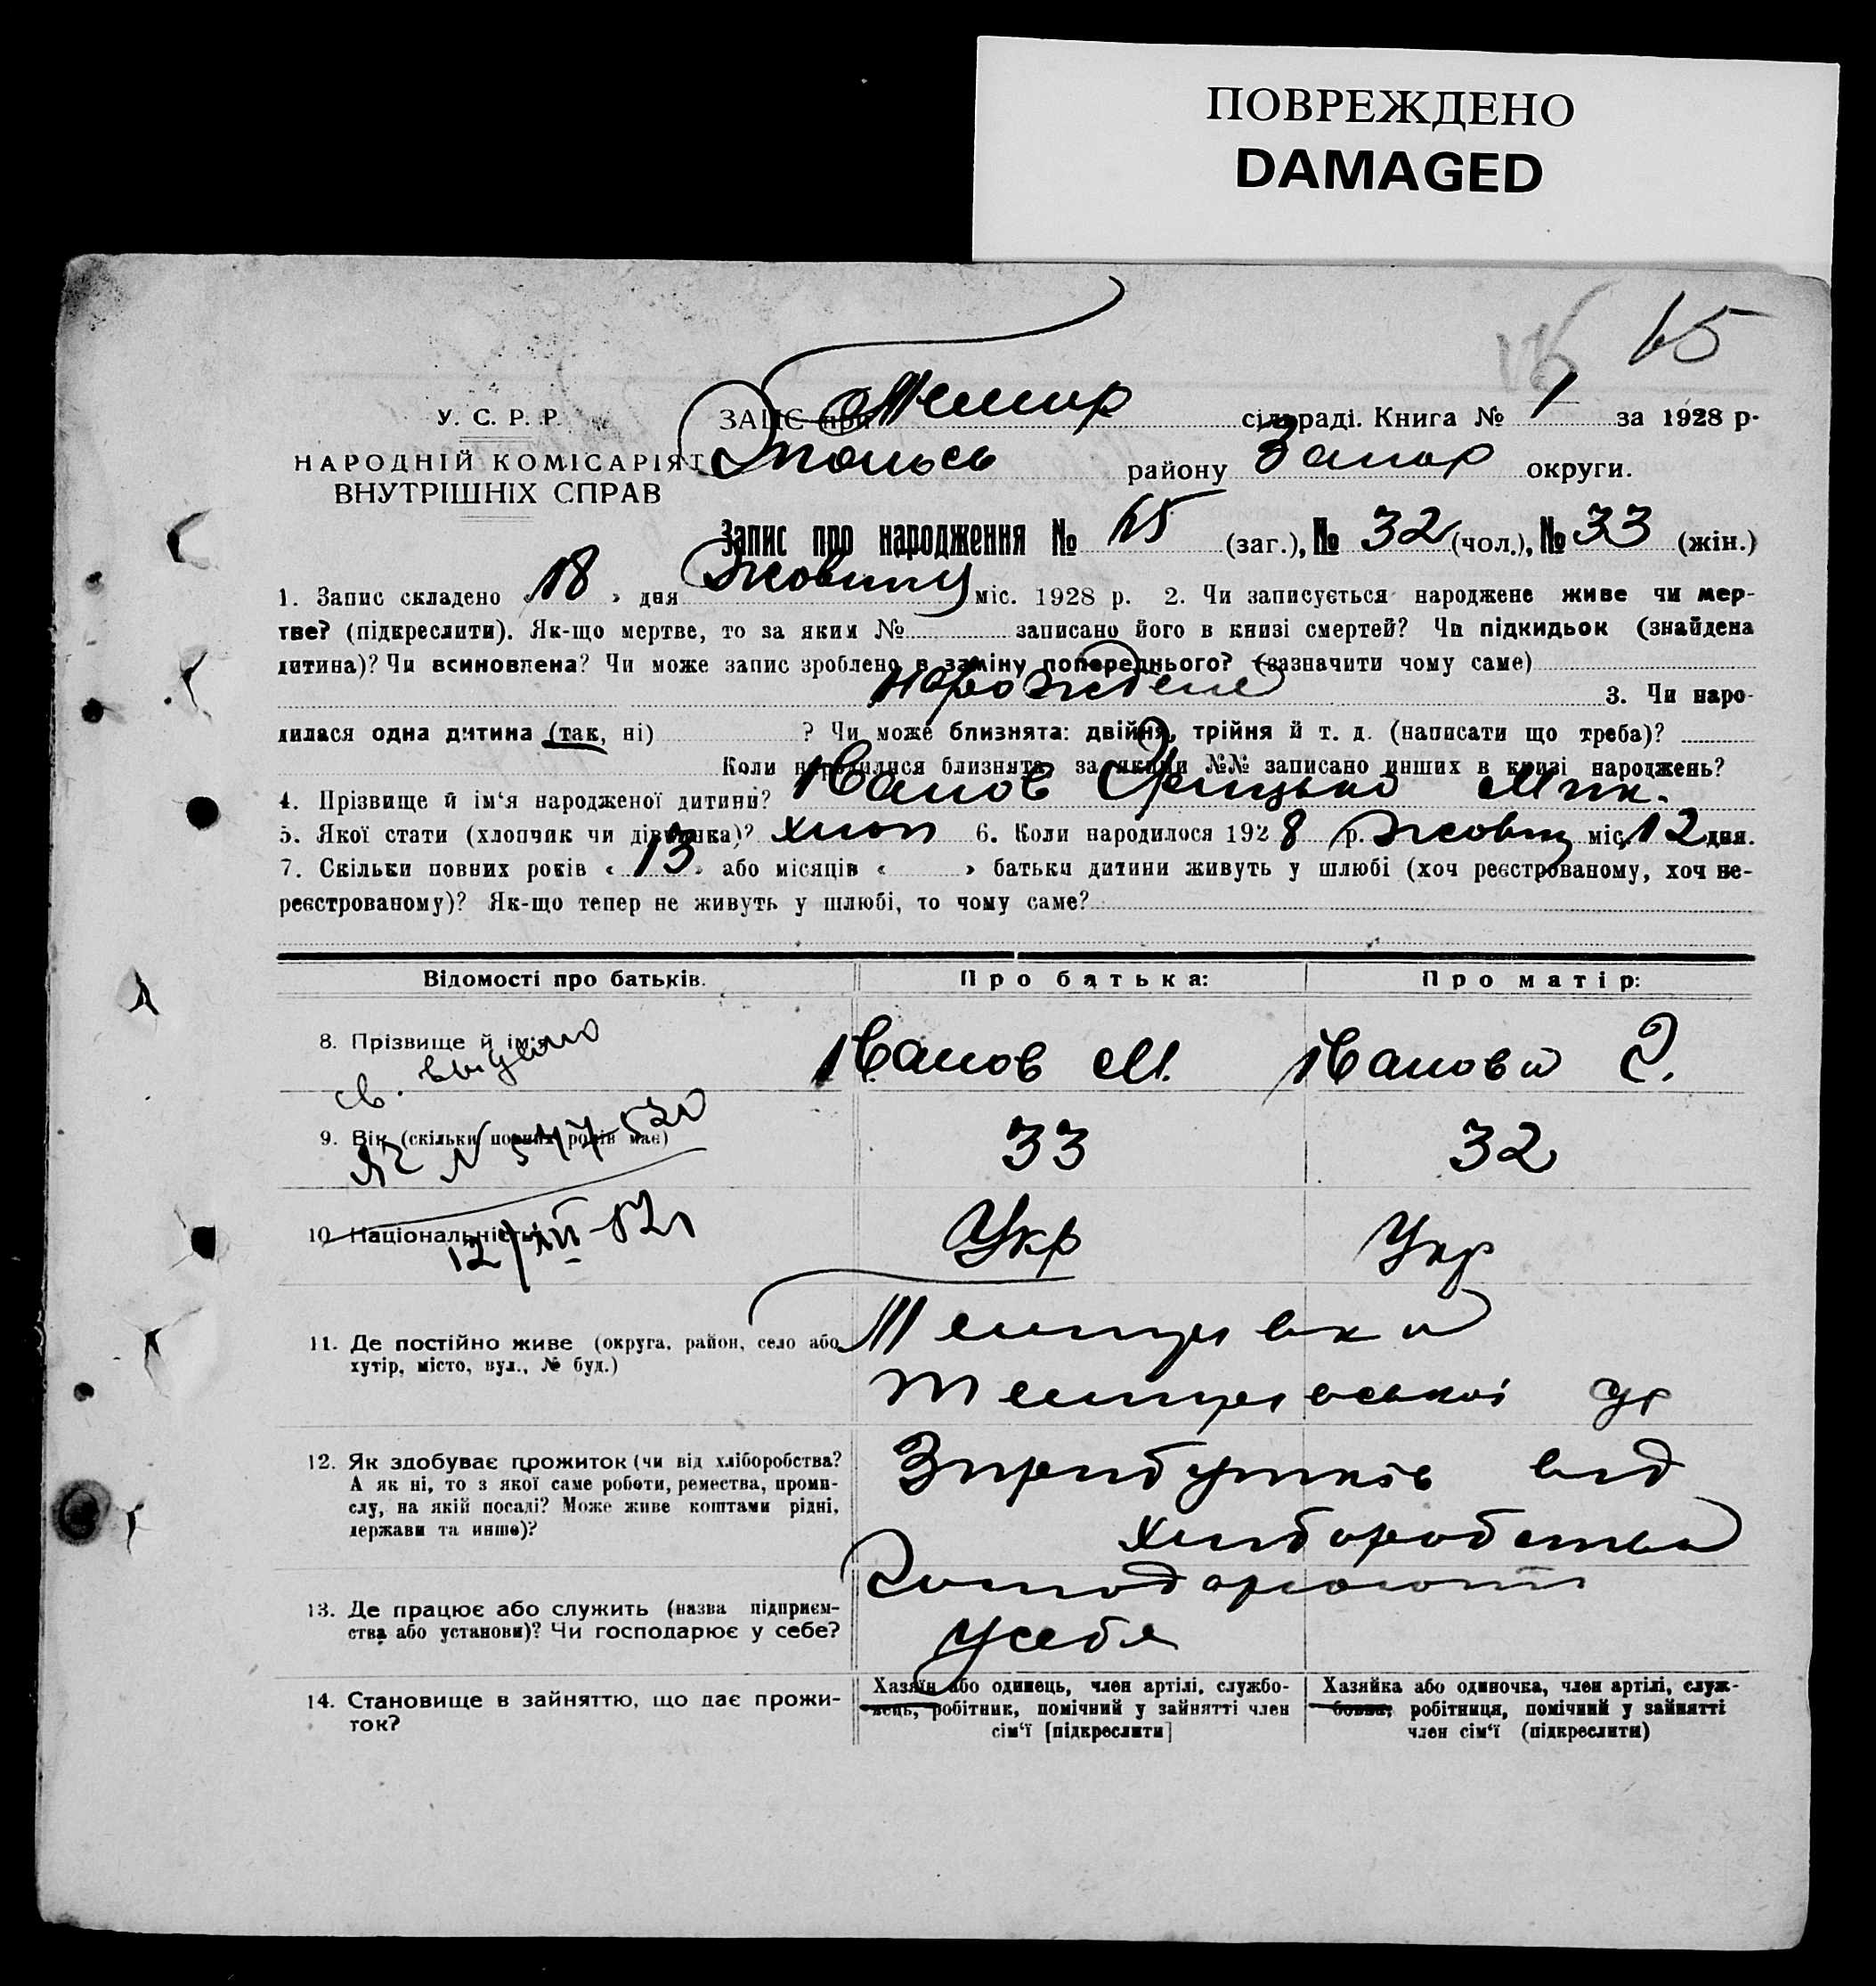 ПОВРЕЖДЕНО
DAMAGED
65
У. С. Р. Р.
НАРОДНІЙ КОМІСАРІЯТ
ВНУТРІШНІХ СПРАВ
ЗАПИС при Темир сільраді. Книга № 1 за 1928 р.
району Запор округи.
Запис про народження № 65 (заг.), № 32 (чол.), № 33 (жін.)
1. Запис складено « 18 » дня Жовтня міс. 1928 р. 2. Чи записується народжене живе чи мер-
тве? (підкреслити). Як-що мертве, то за яким № записано його в книзі смертей? Чи підкидьок (знайдена
дитина)? Чи всиновлена? Чи може запис зроблено в заміну попереднього? (зазначити чому саме)
3. Чи наро-
дилася одна дитина (так, ні) ? Чи може близнята: двійня, трійня й т. д. (написати що треба)?
Коли народилися близнята, за якими №№ записано инших в книзі народжень?
4. Прізвище й ім‘я народженої дитини? Іванов Грицько Мик.
5. Якої стати (хлопчик чи дівчинка)? хлоп 6. Коли народилося 1928 р. Жовт міс. 12 дня.
7. Скільки повних років « 13 » або місяців « » батьки дитини живуть у шлюбі (хоч реєстрованому, хоч не-
реєстрованому)? Як-що тепер не живуть у шлюбі, то чому саме?
Відомості про батьків. Про батька: Про матір:
8. Прізвище й ім‘я Іванов М. Іванова Г.
св. выдано
9. Вік (скільки повних років має) 33 32
10. Національність Укр Укр
12/XII-52
11. Де постійно живе (округа, район, село або
хутір, місто, вул., № буд.)
12. Як здобуває прожиток (чи від хліборобства?
А як ні, то з якої саме роботи, ремества, проми-
слу, на якій посаді? Може живе коштами рідні,
держави та инше)?
від
хліборобства
13. Де працює або служить (назва підприєм-
ства або установи)? Чи господарює у себе?
Господарюють
у себе
14. Становище в зайняттю, що дає прожи-
ток?
Хазяїн або одинець, член артілі, службо-
вець, робітник, помічний у зайнятті член
сім‘ї [підкреслити]
Хазяйка або одиночка, член артілі, служ-
бовка, робітниця, помічний у зайнятті
член сім‘ї (підкреслити)